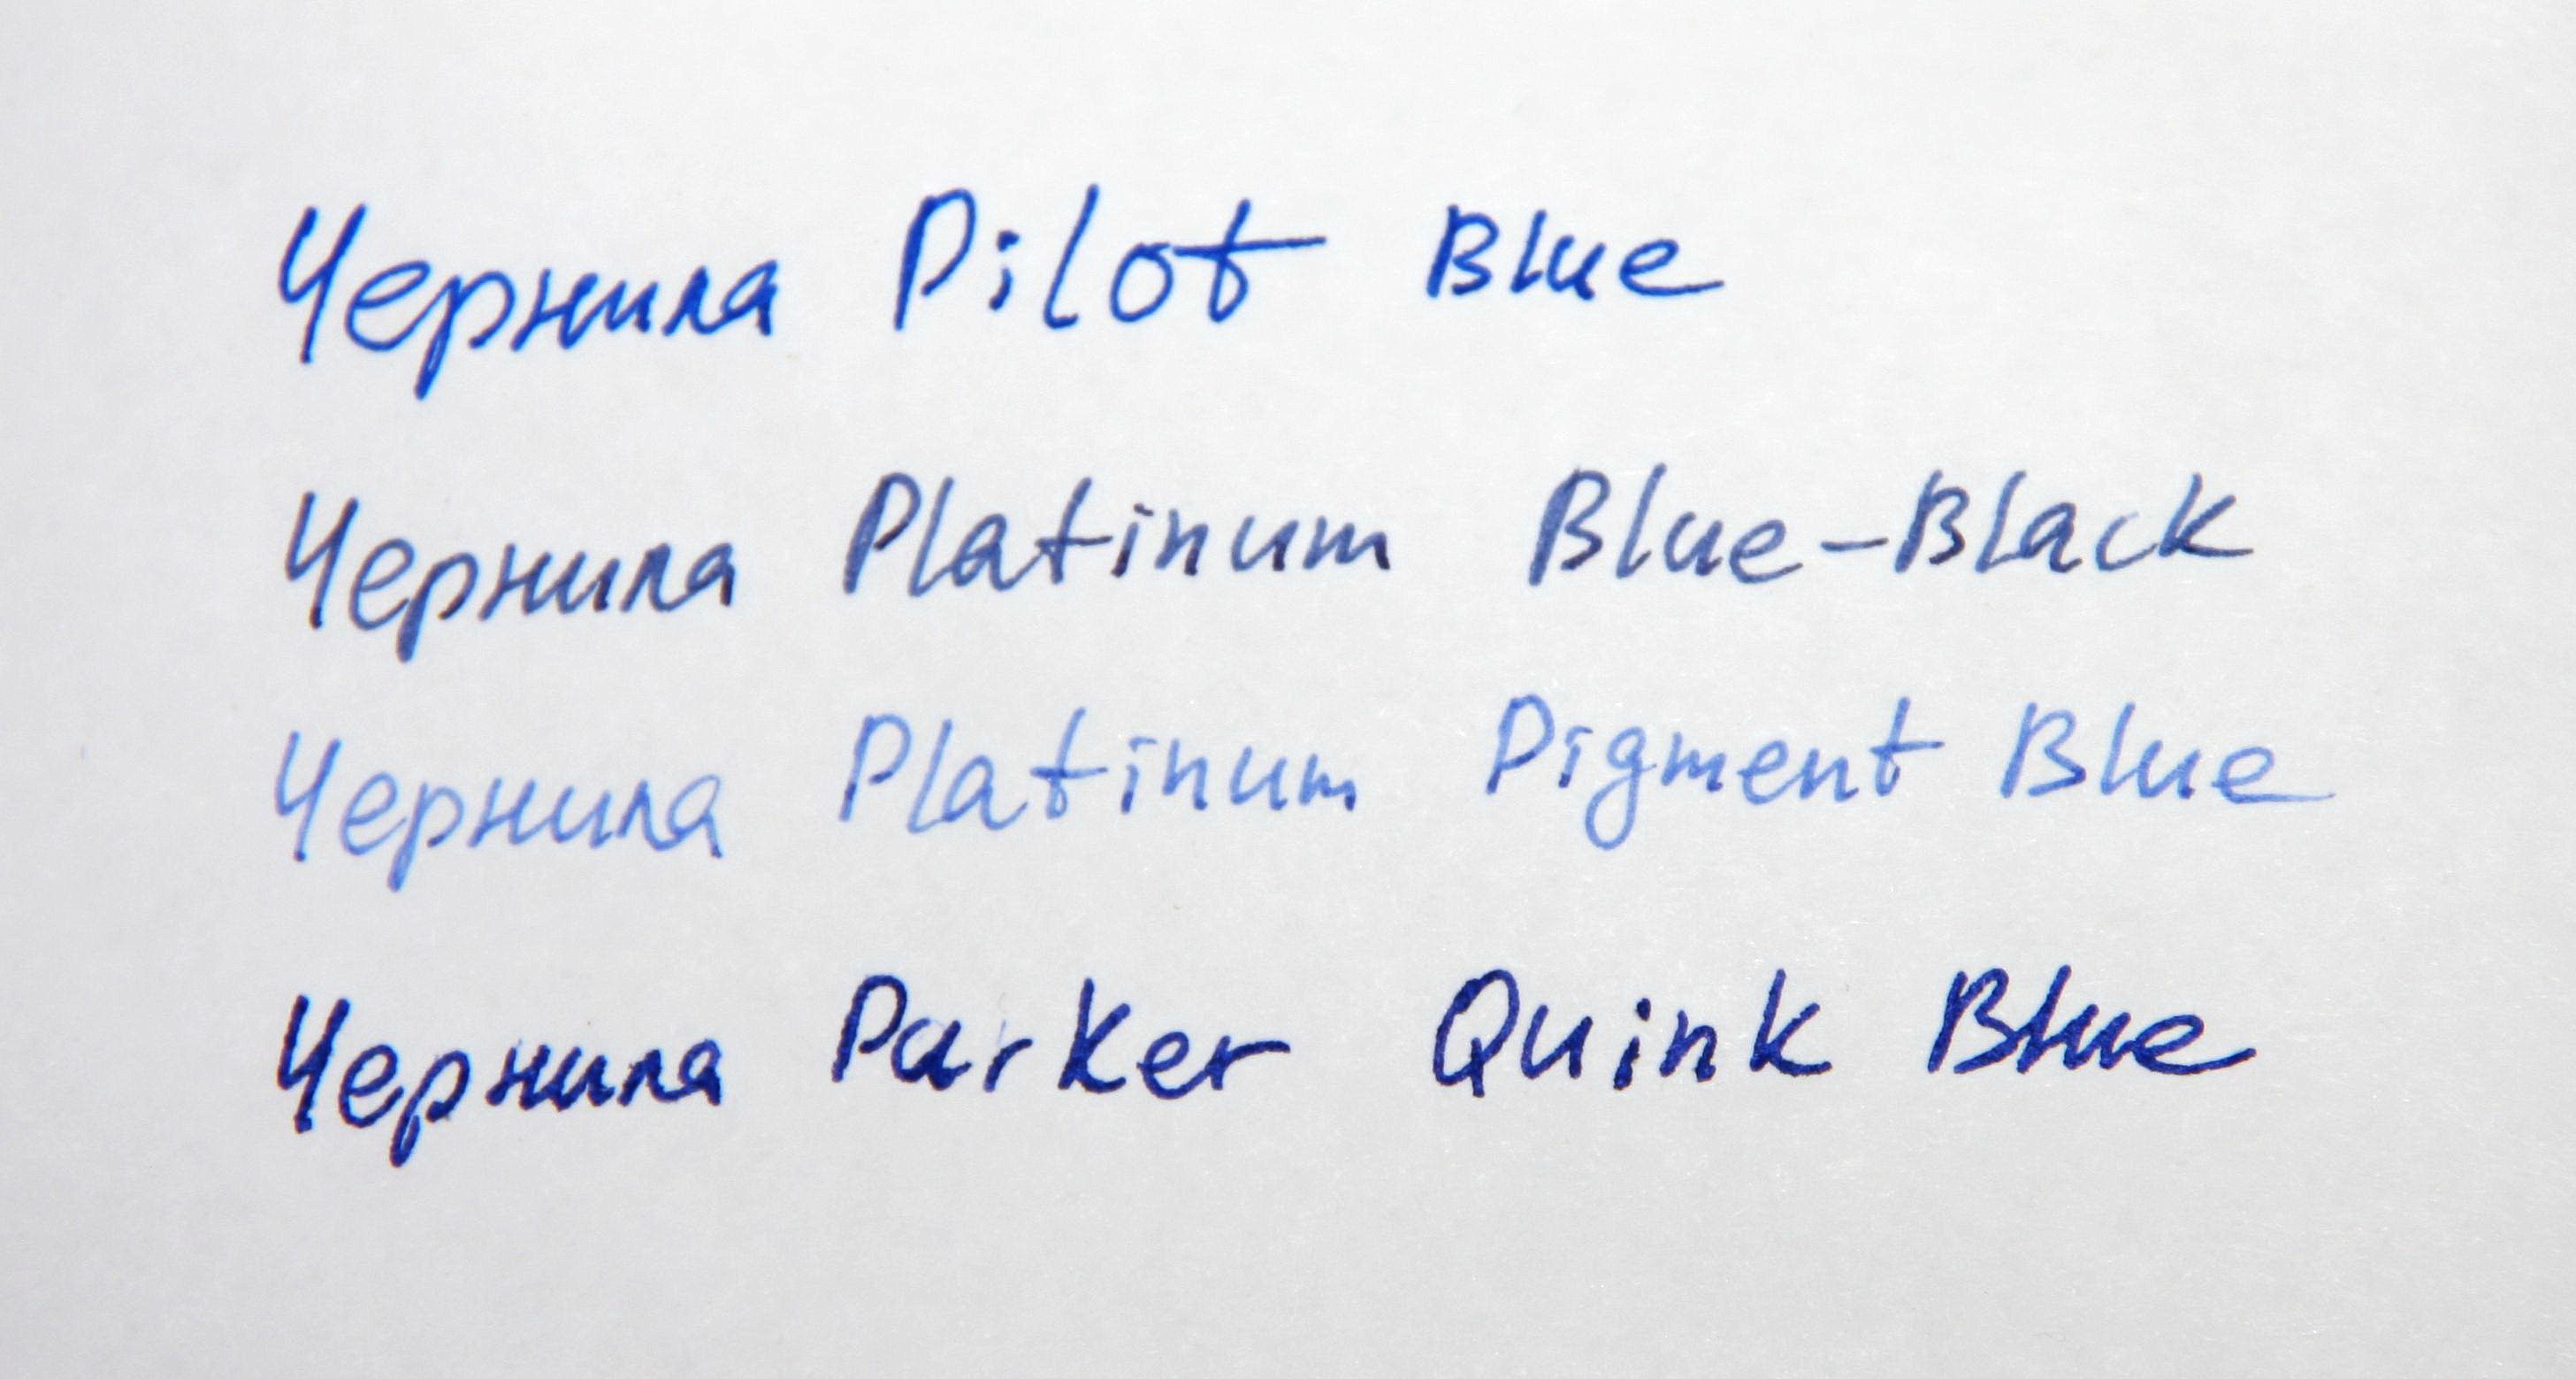 Чернила Pilot Blue
Чернила Platinum Blue-Black
Чернила Platinum Pigment Blue
Чернила Parker Quink Blue